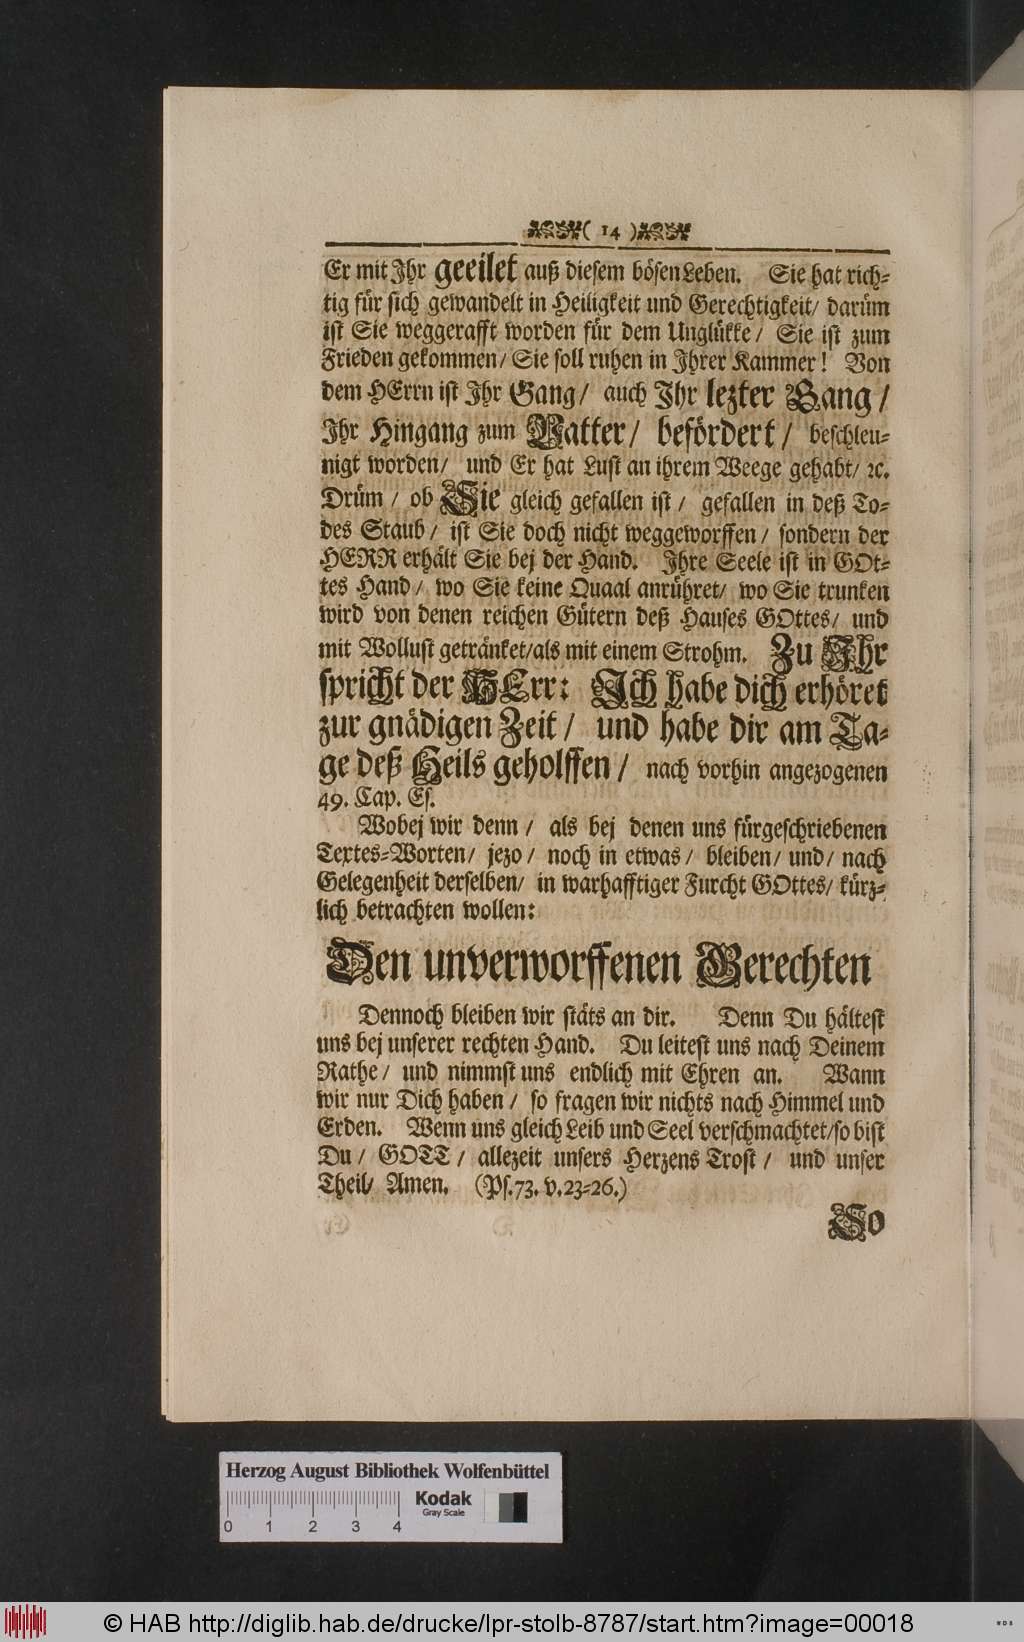 ( 14 )
Er mit Ihr geeilet auß diesem bösen Leben. Sie hat rich=
tig für sich gewandelt in Heiligkeit und Gerechtigkeit/ darüm
ist Sie weggerafft worden für dem Unglükke/ Sie ist zum
Frieden gekommen/ Sie soll ruhen in Ihrer Kammer! Von
dem HErrn ist Ihr Gang/ auch Ihr lezter Gang/
Ihr Hingang zum Vatter/ befördert/ beschleu=
nigt worden/ und Er hat Lust an ihrem Weege gehabt/ ꝛc.
Drüm/ ob Sie gleich gefallen ist/ gefallen in deß To=
des Staub/ ist Sie doch nicht weggeworffen/ sondern der
HERR erhält Sie bej der Hand. Ihre Seele ist in GOt=
tes Hand/ wo Sie keine Quaal anrühret/ wo Sie trunken
wird von denen reichen Gütern deß Hauses GOttes/ und
mit Wollust getränket/als mit einem Strohm. Zu Ihr
spricht der HErr: Ich habe dich erhöret
zur gnädigen Zeit/ und habe dir am Ta=
ge deß Heils geholffen/ nach vorhin angezogenen
49. Cap. Es.
Wobej wir denn/ als bej denen uns fürgeschriebenen
Textes=Worten/ jezo/ noch in etwas/ bleiben/ und/ nach
Gelegenheit derselben/ in warhafftiger Furcht GOttes/ kürz=
lich betrachten wollen:
Den unverworffenen Gerechten
Dennoch bleiben wir stäts an dir. Denn Du hältest
uns bej unserer rechten Hand. Du leitest uns nach Deinem
Rathe/ und nimmst uns endlich mit Ehren an. Wann
wir nur Dich haben/ so fragen wir nichts nach Himmel und
Erden. Wenn uns gleich Leib und Seel verschmachtet/so bist
Du/ GOTT/ allezeit unsers Herzens Trost/ und unser
Theil/ Amen. (Ps.73. v.23=26.)
So
Herzog August Bibliothek Wolfenbüttel
Kodak
Gray Scale
0 1 2 3 4
© HAB http://diglib.hab.de/drucke/lpr-stolb-8787/start.htm?image=00018